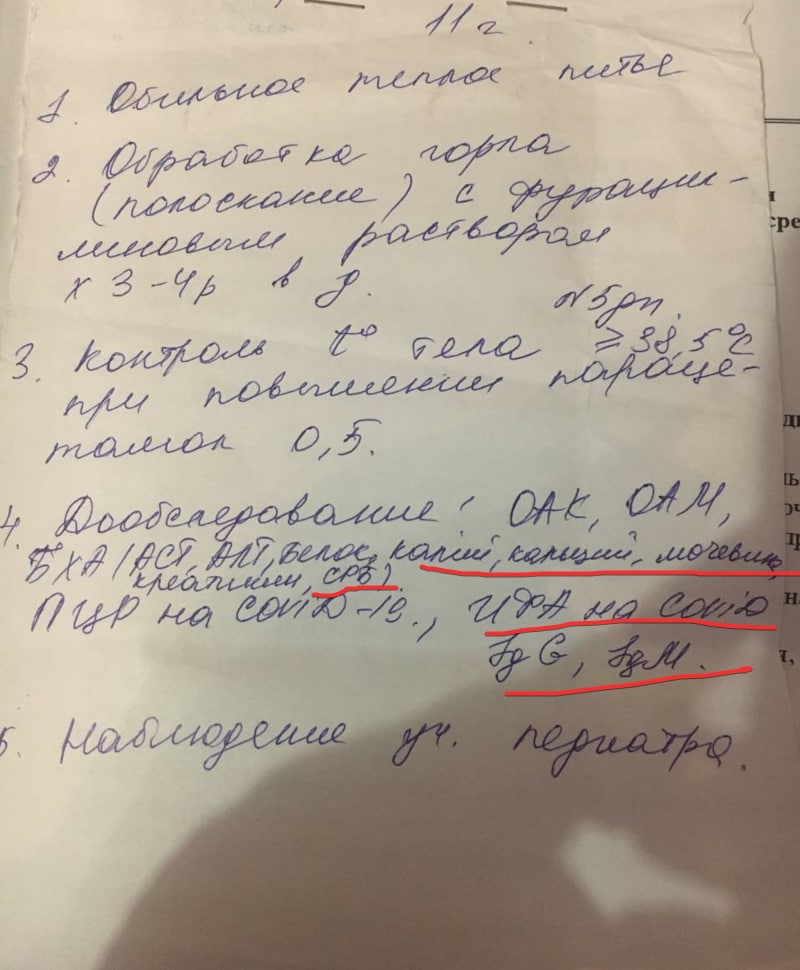 11 г
1. Обильное теплое питье
2. Обработка горла
(полоскание) с фураци-
линовым раствором
х 3-4р в д.
N5дн.
3. Контроль t° тела ≥38,5°C
при повышении параце-
тамол 0,5.
4. Дообследование: ОАК, ОАМ,
БХА (АСТ, АЛТ, белок, калий, кальций, мочевина,
креатинин, СРБ)
ПЦР на Covid-19., ИФА на Covid
IgG, IgM.
5. Наблюдение уч. педиатра.
сре